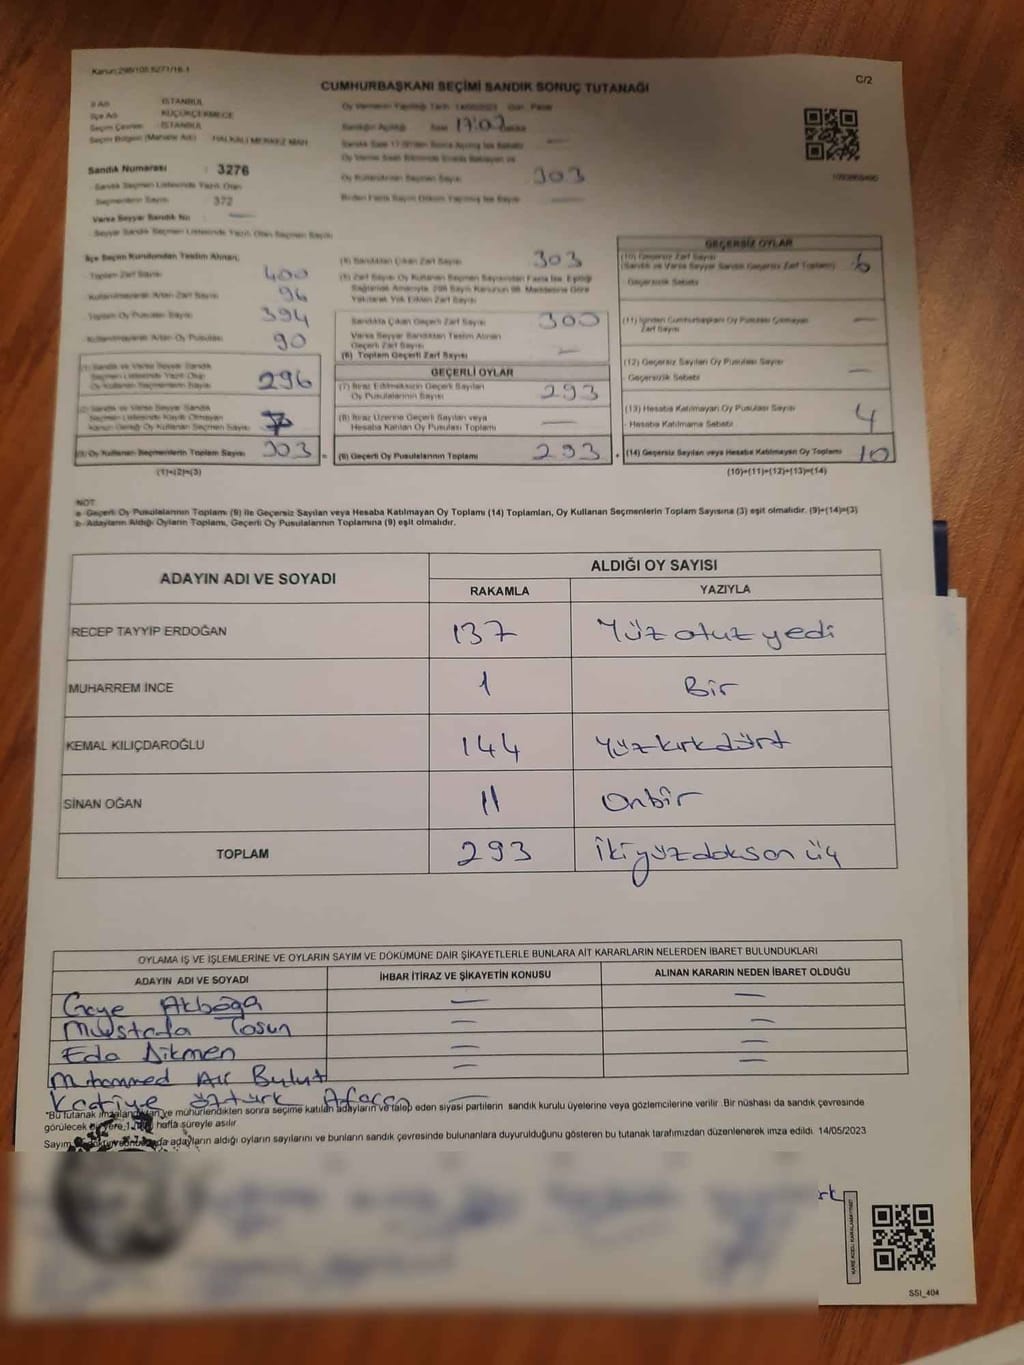 Kanun:298/105,6271/16-1
C/2
CUMHURBAŞKANI SEÇİMİ SANDIK SONUÇ TUTANAĞI
İl Adı : İSTANBUL
İlçe Adı : KÜÇÜKÇEKMECE
Seçim Çevresi : İSTANBUL
Seçim Bölgesi (Mahalle Adı) : HALKALI MERKEZ MAH.
Sandık Numarası : 3276
Sandık Seçmen Listesinde Yazılı Olan
Seçmenlerin Sayısı 372
Varsa Seyyar Sandık No —
Seyyar Sandık Seçmen Listesinde Yazılı Olan Seçmen Sayısı
Oy Vermenin Yapıldığı Tarih 14/05/2023 Gün Pazar
Sandığın Açıldığı Saat 17:02 Dakika
Oy Kullandırılan Seçmen Sayısı 303
—
İlçe Seçim Kurulundan Teslim Alınan;
Toplam Zarf Sayısı 400
Kullanılmayarak Artan Zarf Sayısı 96
Toplam Oy Pusulası Sayısı 394
Kullanılmayarak Artan Oy Pusulası 90
(1) Sandık ve Varsa Seyyar Sandık
Seçmen Listesinde Yazılı Olup
Oy Kullanan Seçmenlerin Sayısı 296
(2) Sandık ve Varsa Seyyar Sandık
Seçmen Listesinde Kaydı Olmayan
Kanun Gereği Oy Kullanan Seçmen Sayısı 7
(3) Oy Kullanan Seçmenlerin Toplam Sayısı 303
(1)+(2)=(3)
(4) Sandıktan Çıkan Zarf Sayısı 303
(5) Zarf Sayısı Oy Kullanan Seçmen Sayısından Fazla İse, Eşitliği
Sağlamak Amacıyla, 298 Sayılı Kanunun 98. Maddesine Göre
Yakılarak Yok Edilen Zarf Sayısı
Sandıkta Çıkan Geçerli Zarf Sayısı 300
Varsa Seyyar Sandıktan Teslim Alınan
Geçerli Zarf Sayısı —
(6) Toplam Geçerli Zarf Sayısı
GEÇERLİ OYLAR
(7) İtiraz Edilmeksizin Geçerli Sayılan
Oy Pusulalarının Sayısı 293
(8) İtiraz Üzerine Geçerli Sayılan veya
Hesaba Katılan Oy Pusulası Toplamı —
(9) Geçerli Oy Pusulalarının Toplamı 293
GEÇERSİZ OYLAR
(10) Geçersiz Zarf Sayısı
(Sandık ve Varsa Seyyar Sandık Geçersiz Zarf Toplamı) 6
Geçersizlik Sebebi
(11) İçinden Cumhurbaşkanı Oy Pusulası Çıkmayan
Zarf Sayısı —
(12) Geçersiz Sayılan Oy Pusulası Sayısı
Geçersizlik Sebebi —
(13) Hesaba Katılmayan Oy Pusulası Sayısı 4
- Hesaba Katılmama Sebebi
(14) Geçersiz Sayılan veya Hesaba Katılmayan Oy Toplamı 10
(10)+(11)+(12)+(13)=(14)
NOT:
a- Geçerli Oy Pusulalarının Toplamı (9) ile Geçersiz Sayılan veya Hesaba Katılmayan Oy Toplamı (14) Toplamları, Oy Kullanan Seçmenlerin Toplam Sayısına (3) eşit olmalıdır. (9)+(14)=(3)
b- Adayların Aldığı Oyların Toplamı, Geçerli Oy Pusulalarının Toplamına (9) eşit olmalıdır.
ADAYIN ADI VE SOYADI ALDIĞI OY SAYISI
RAKAMLA YAZIYLA
RECEP TAYYİP ERDOĞAN 137 Yüz otuz yedi
MUHARREM İNCE 1 Bir
KEMAL KILIÇDAROĞLU 144 Yüz kırk dört
SİNAN OĞAN 11 Onbir
TOPLAM 293 İki yüz doksan üç
OYLAMA İŞ VE İŞLEMLERİNE VE OYLARIN SAYIM VE DÖKÜMÜNE DAİR ŞİKAYETLERLE BUNLARA AİT KARARLARIN NELERDEN İBARET BULUNDUKLARI
ADAYIN ADI VE SOYADI İHBAR İTİRAZ VE ŞİKAYETİN KONUSU ALINAN KARARIN NEDEN İBARET OLDUĞU
Gaye Akboğa — —
Mustafa Tosun — —
Eda Dikmen — —
Muhammed Ali Bulut — —
Kadriye Öztürk —
*Bu tutanak imzalandıktan ve mühürlendikten sonra seçime katılan adayların ve talep eden siyasi partilerin sandık kurulu üyelerine veya gözlemcilerine verilir .Bir nüshası da sandık çevresinde
görülecek bir yere 1 hafta süreyle asılır
adayların aldığı oyların sayılarını ve bunların sandık çevresinde bulunanlara duyurulduğunu gösteren bu tutanak tarafımızdan düzenlenerek imza edildi. 14/05/2023
SSI_404